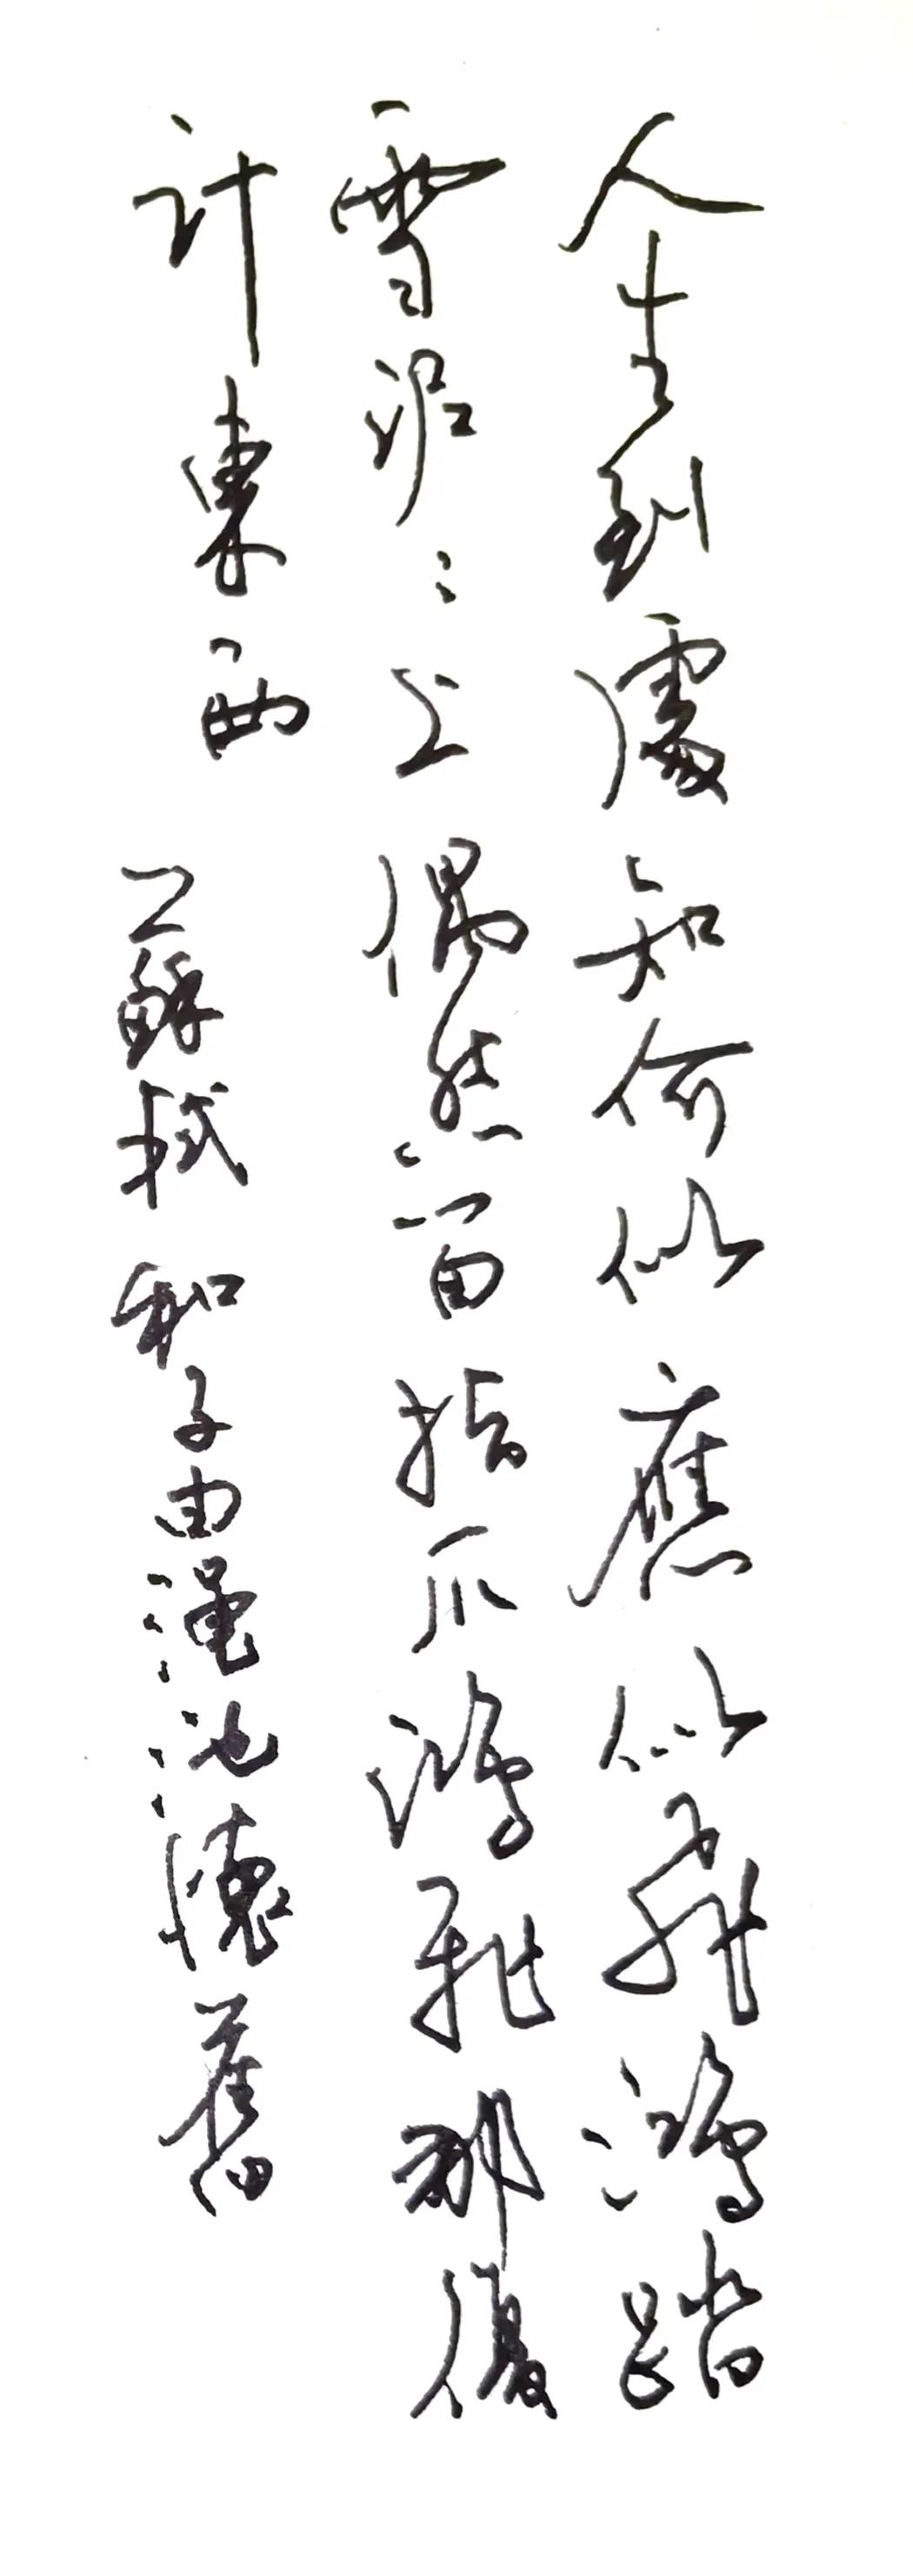 人生到處知何似應似飛鴻踏
雪泥〻上偶然留指爪鴻飛那復
計東西 蘇軾和子由澠池懷舊